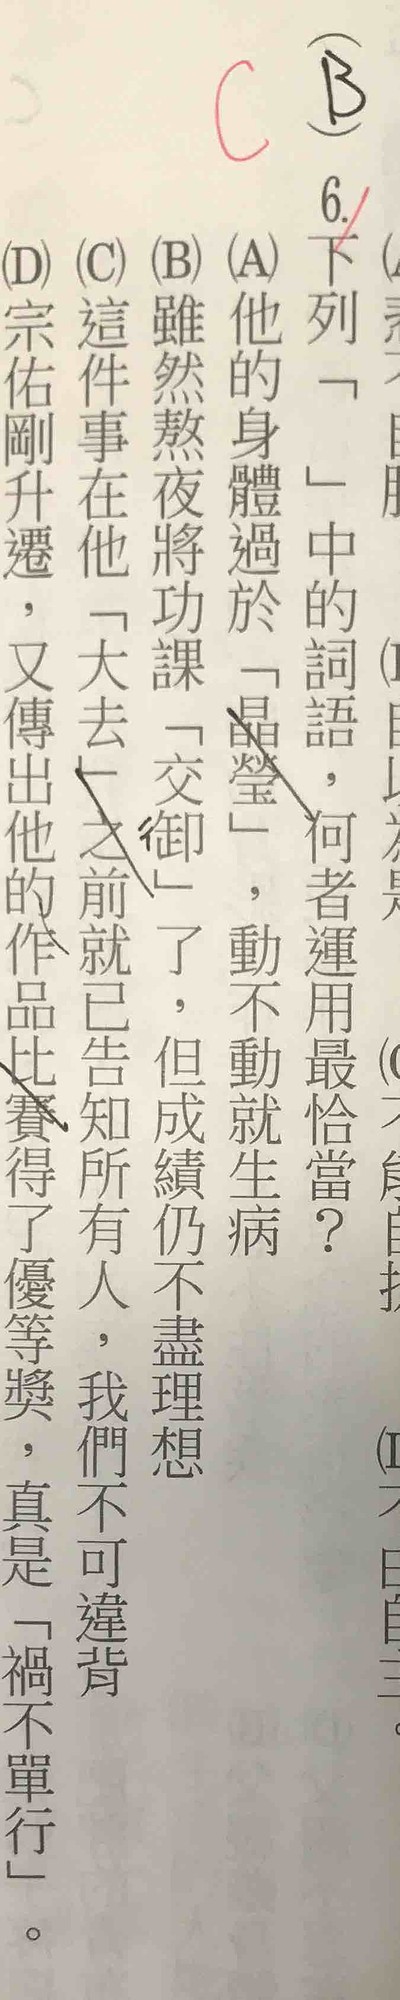 (B) 6.下列「　」中的詞語，何者運用最恰當？
C
(A)他的身體過於「晶瑩」，動不動就生病
(B)雖然熬夜將功課「交御」了，但成績仍不盡理想
(C)這件事在他「大去」之前就已告知所有人，我們不可違背
(D)宗佑剛升遷，又傳出他的作品比賽得了優等獎，真是「禍不單行」。